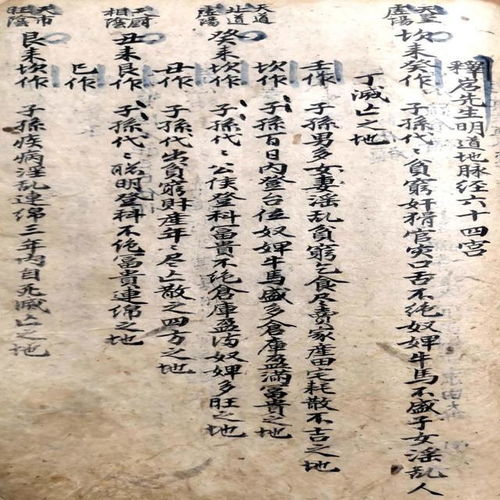 釋居先生明道地脉经六十四宮
天皇
虛陽
坎来癸作
子孫代〻貧窮奸猾官灾口舌不绝奴婢牛馬不盛子女淫乱人
丁滅亡之地
壬作
子孫男多女妻淫乱貧窮乞食尽賣家産田宅耗散不吉之地
坎作
子孫百日內登台位奴婢牛馬盛多倉庫盈滿冨貴之地
天道
北道
虛陽
癸来坎作
子孫代〻公侯登科冨貴不绝倉庫盈满奴婢多旺之地
丑作
子孫代出貧窮財産年〻尽亡散之四方之地
天厨
相陰
丑来艮作
子孫代〻聡明登科不绝冨貴連绵之地
巳作
天市
旺陰
艮来坎作
子孫疾病淫乱連绵三年內自死滅亡之地